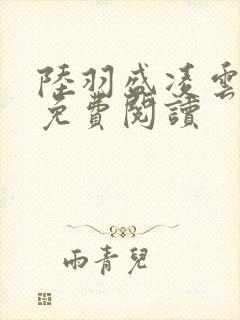 陸羽盛凌雲
免費閱讀
雨青兒